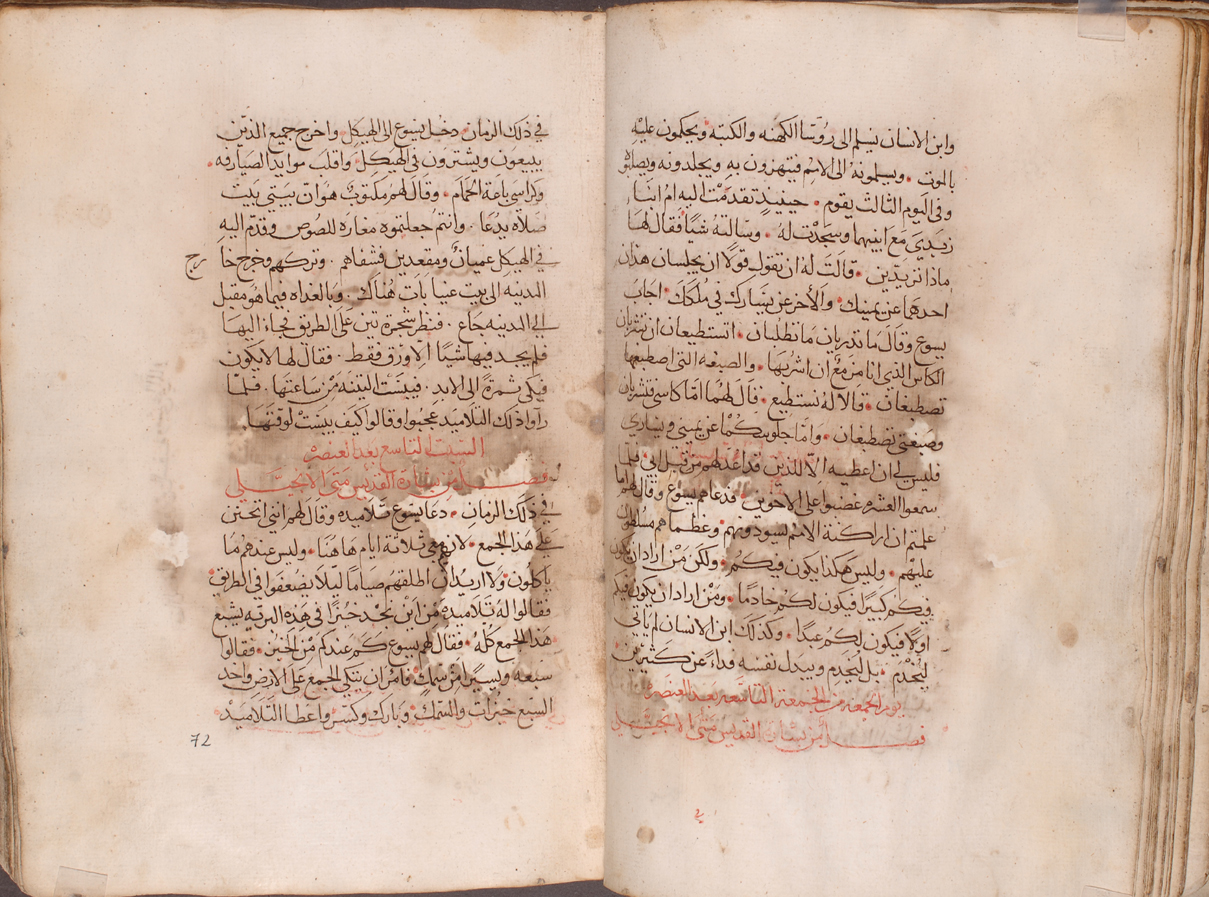 وابن الانسان يسلم الى رؤسا الكهنه والكتبه ويحكمون عليه
بالموت ويسلمونه الى الامم فيتهزون به ويجلدونه ويصلبوه
وفي اليوم الثالث يقوم حينيذ تقدمت اليه ام ابنا
زبدي مع ابنيها وسجدت له وسالته شيا فقال لها
ماذا تريدين قالت له ان تقول قولا ان يجلسان هذان
احدهما عن يمينك والاخر عن يسارك في ملكك اجاب
يسوع وقال ما تدريان ما تطلبان اتستطيعان ان تشربان
الكاس الذي انا مزمع ان اشربها والصبغه التي اصطبغها
تصطبغان قالا له نستطيع قال لهما اما كاسي فتشربان
وصبغتي تصطبغان واما جلوسكما عن يميني ويساري
فليس لي ان اعطيه الا للذين قد اعد لهم من قبل ابي فلما
سمعوا العشره غضبوا على الاخوين فدعاهم يسوع وقال لهم اما
علمتم ان اراكنة الامم تسودهم وعظماهم مسلطون
عليهم وليس هكذا يكون فيكم ولكن من اراد ان يكون
فيكم كبيرا فيكون لكم خادما ومن اراد ان يكون فيكم
اولا فيكون لكم عبدا وكذلك ابن الانسان لم ياتي
ليخدم بل ليخدم ويبدل نفسه فداء عن كثيرين
يوم الجمعه من الجمعه التاسعه بعد العنصره
فصل من بشارة القديس متى الانجيلي
في
في ذلك الزمان دخل يسوع الى الهيكل واخرج جميع الذين
يبيعون ويشترون في الهيكل واقلب موايد الصيارفه
وكراسي باعة الحمام وقال لهم مكتوب هو ان بيتي بيت
صلاه يدعا وانتم جعلتموه مغاره للصوص وقدم اليه
في الهيكل عميان ومقعدين فشفاهم وتركهم وخرج خا
رج
المدينه الى بيت عنيا بات هناك وبالغداه فيما هو مقبل
الي المدينه جاع فنظر شجرة تين على الطريق فجاء اليها
فلم يجد فيها شيا الا ورق فقط فقال لها لا يكون
فيكي ثمرة الى الابد فيبست التينه من ساعتها فلما
راوا ذلك التلاميد عجبوا وقالوا كيف يبست لوقتها
السبت التاسع بعد العنصره
فصل من بشارة القديس متى الانجيلي
في ذلك الزمان دعا يسوع تلاميده وقال لهم انني اتحنن
على هذا الجمع لان معي ثلاثة ايام هاهنا وليس عندهم ما
ياكلون ولا اريد ان اطلقهم صياما ليلا يضعفوا في الطريق
فقالوا له تلاميده من اين نجد خبزا في هذه البريه يشبع
هذا الجمع كله فقال لهم يسوع كم عندكم من الخبز فقالوا
سبعه ويسيرا من سمك فامر ان يتكي الجمع على الارض واخد
السبع خبزات والسمك وبارك وكسر واعطا التلاميد
72